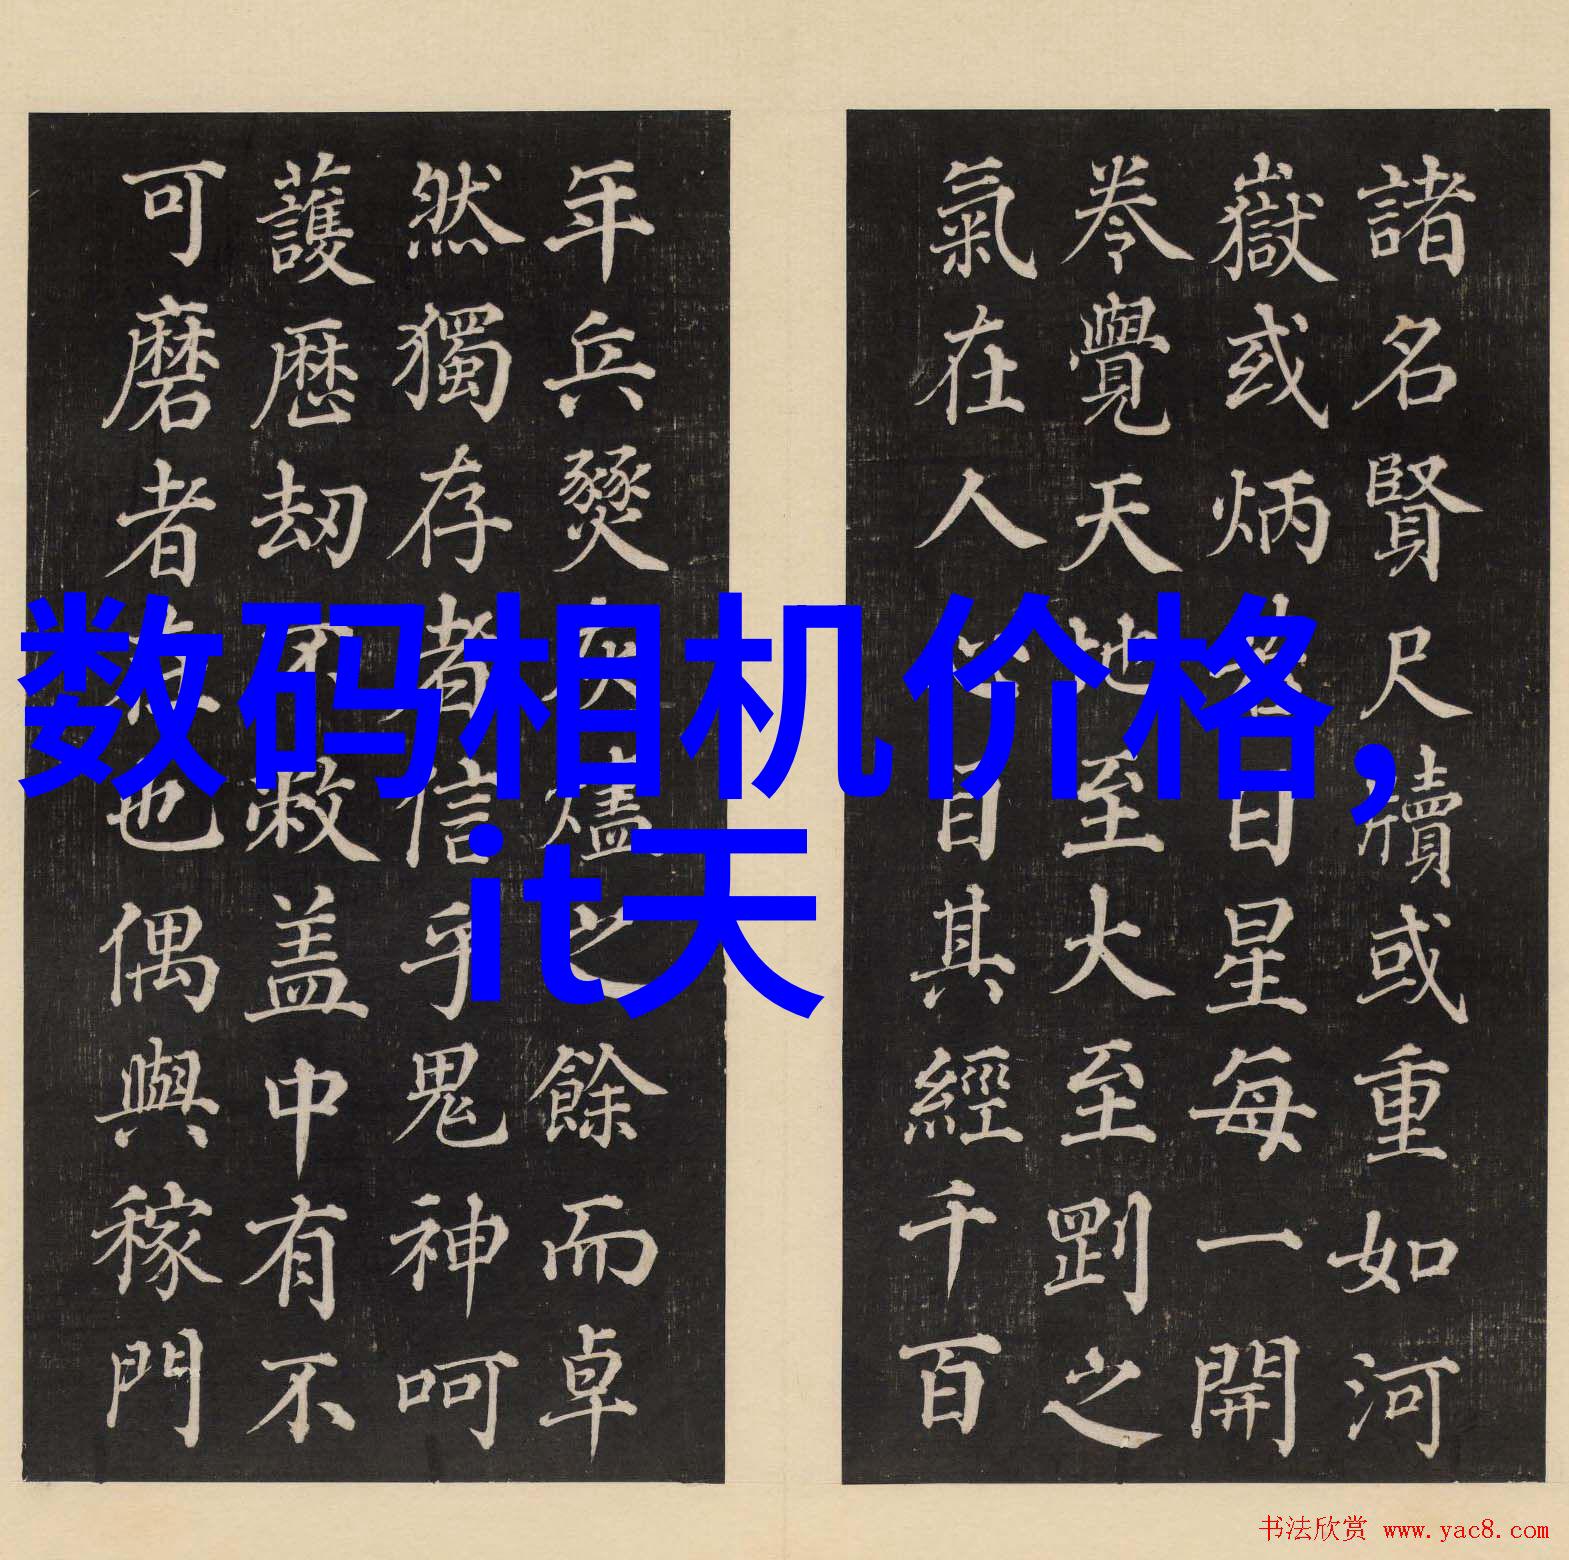 数码相机价格,
it天
諸名賢尺牘或重如河
嶽或炳日星每一開
卷覺天地至大至剛之
氣在人心目其經千百
年兵燹灰燼之餘而卓
然獨存者信乎鬼神呵
護歷刼不敝盖中有不
可磨者在也偶與稼門
书法欣赏 www.yac8.com